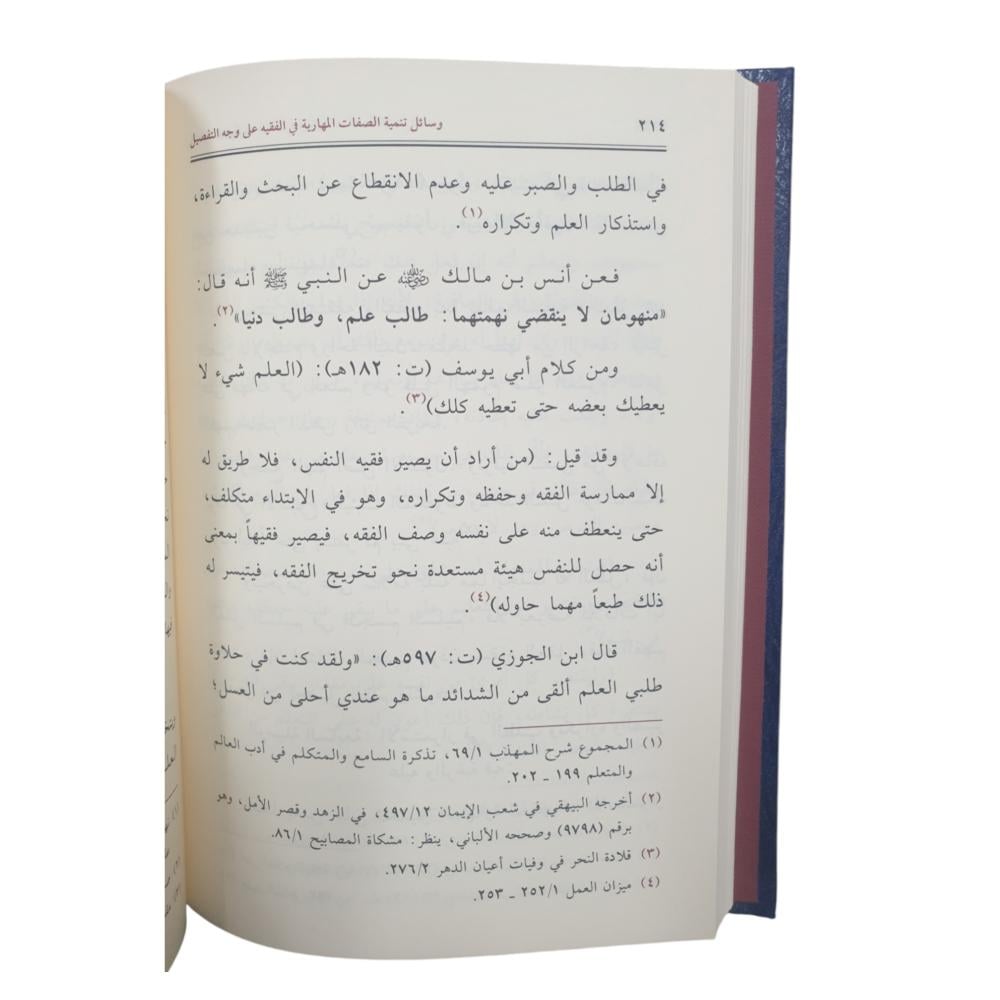 ٢١٤
وسائل تنمية الصفات المهارية في الفقيه على وجه التفصيل
في الطلب والصبر عليه وعدم الانقطاع عن البحث والقراءة،
واستذكار العلم وتكراره(١).
فعن أنس بن مالك رضي الله عنه عن النبي ﷺ أنه قال:
«منهومان لا ينقضي نهمتهما: طالب علم، وطالب دنيا»(٢).
ومن كلام أبي يوسف (ت: ١٨٢هـ): (العلم شيء لا
يعطيك بعضه حتى تعطيه كلك)(٣).
وقد قيل: (من أراد أن يصير فقيه النفس، فلا طريق له
إلا ممارسة الفقه وحفظه وتكراره، وهو في الابتداء متكلف،
حتى ينعطف منه على نفسه وصف الفقه، فيصير فقيهاً بمعنى
أنه حصل للنفس هيئة مستعدة نحو تخريج الفقه، فيتيسر له
ذلك طبعاً مهما حاوله)(٤).
قال ابن الجوزي (ت: ٥٩٧هـ): «ولقد كنت في حلاوة
طلبي العلم ألقى من الشدائد ما هو عندي أحلى من العسل؛
(١) المجموع شرح المهذب ٦٩/١، تذكرة السامع والمتكلم في أدب العالم
والمتعلم ١٩٩ ـ ٢٠٢.
(٢) أخرجه البيهقي في شعب الإيمان ٤٩٧/١٢، في الزهد وقصر الأمل، وهو
برقم (٩٧٩٨) وصححه الألباني، ينظر: مشكاة المصابيح ٨٦/١.
(٣) قلادة النحر في وفيات أعيان الدهر ٢٧٦/٢.
(٤) ميزان العمل ٢٥٢/١ ـ ٢٥٣.